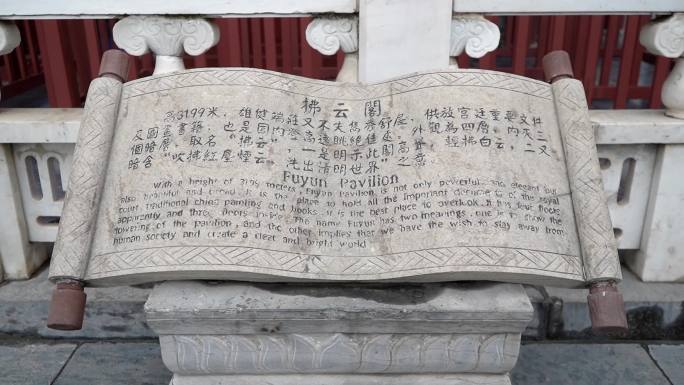 拂云閣
高3199米，雄健端莊又不失雋秀舒展，供放宮廷重要文件
文圖畫書籍，也是园内登高遠眺絶佳處。外觀為四層，内夾三
個暗層。取名“拂云”，一是明示此閣高聳，輕拂白云，二又
暗含“吹拂紅塵煙云，洗出清明世界”之意
Fuyun Pavilion
With a height of 3199 meters, Fuyun Pavilion is not only powerful and elegant but
also beautiful and It is the place to hold all the important documents of the royal
court, traditional china painting and books. It is the best place to overlook. It has four floors
apparently and three floors inside. The name Fuyun has two meanings, one is to show the
towering of the pavilion, and the other implies that we have the wish to stay away from
human society and create a clear and bright world